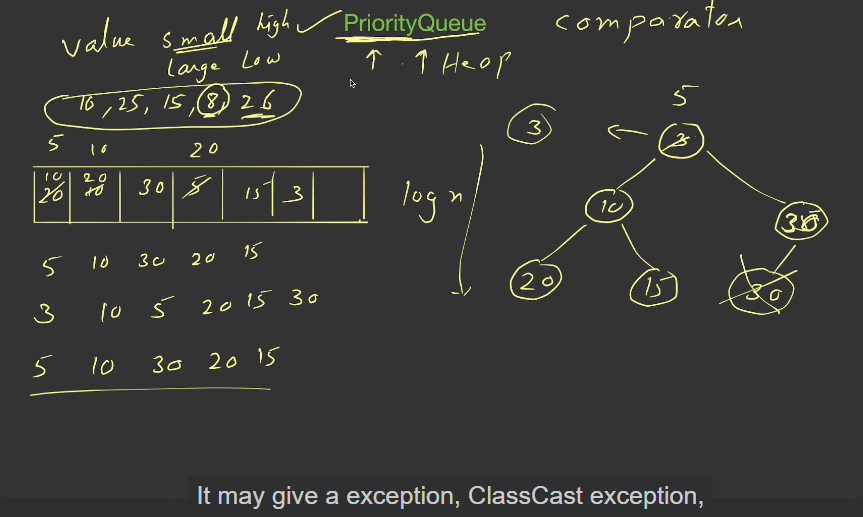 value small high PriorityQueue comparator
large Low ↑ ↑ Heap
10, 25, 15, 8, 26
5 10 20
10 20
20 10 30 5 15 3
log n
5 10 30 20 15
3 10 5 20 15 30
5 10 30 20 15
5
3
10 30
20 15 30
It may give a exception, ClassCast exception,